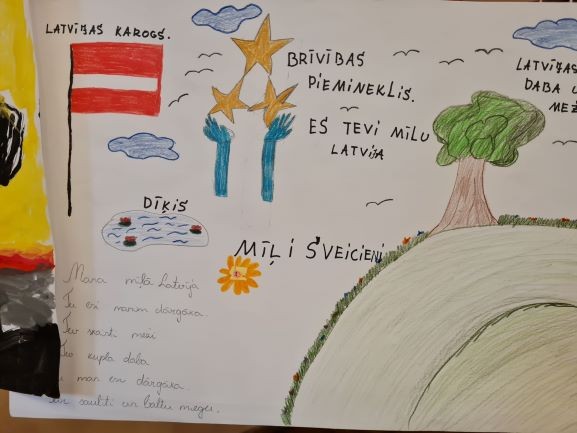 LATVIJAS KAROGS.
BRĪVĪBAS
PIEMINEKLIS.
ES TEVI MĪLU
LATVIJA
LATVIJAS
DABA U
MEŽ
DĪĶIS
MĪĻI SVEICIENI
Mana mīļā Latvija
Tu esi manim dārgāra
Tev skaisti meži
Tev kupla daba
man esi dārgāra.
saulīti un baltu